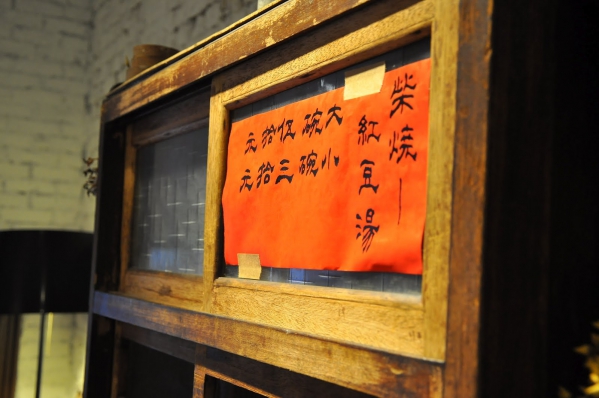 柴燒—
紅豆湯
大碗伍拾元
小碗三拾元